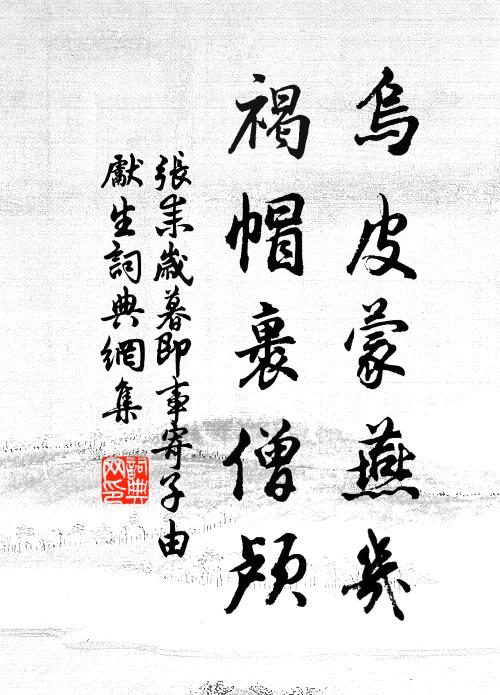 烏皮蒙燕几
褐帽裹僧顱
張耒歲暮即事寄子由
獻生詞典網集
詞典網印